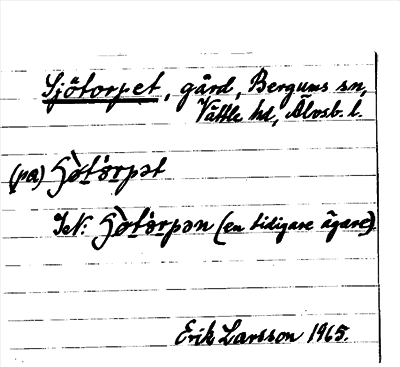 Sjötorpet, gård, Bergums sn,
Vättle hd, Älvsb. l.
(på) ʃö̀tɔ́rpət
IN: ʃö̀tɔ́rpən (en tidigare ägare)
Erik Larsson 1965.